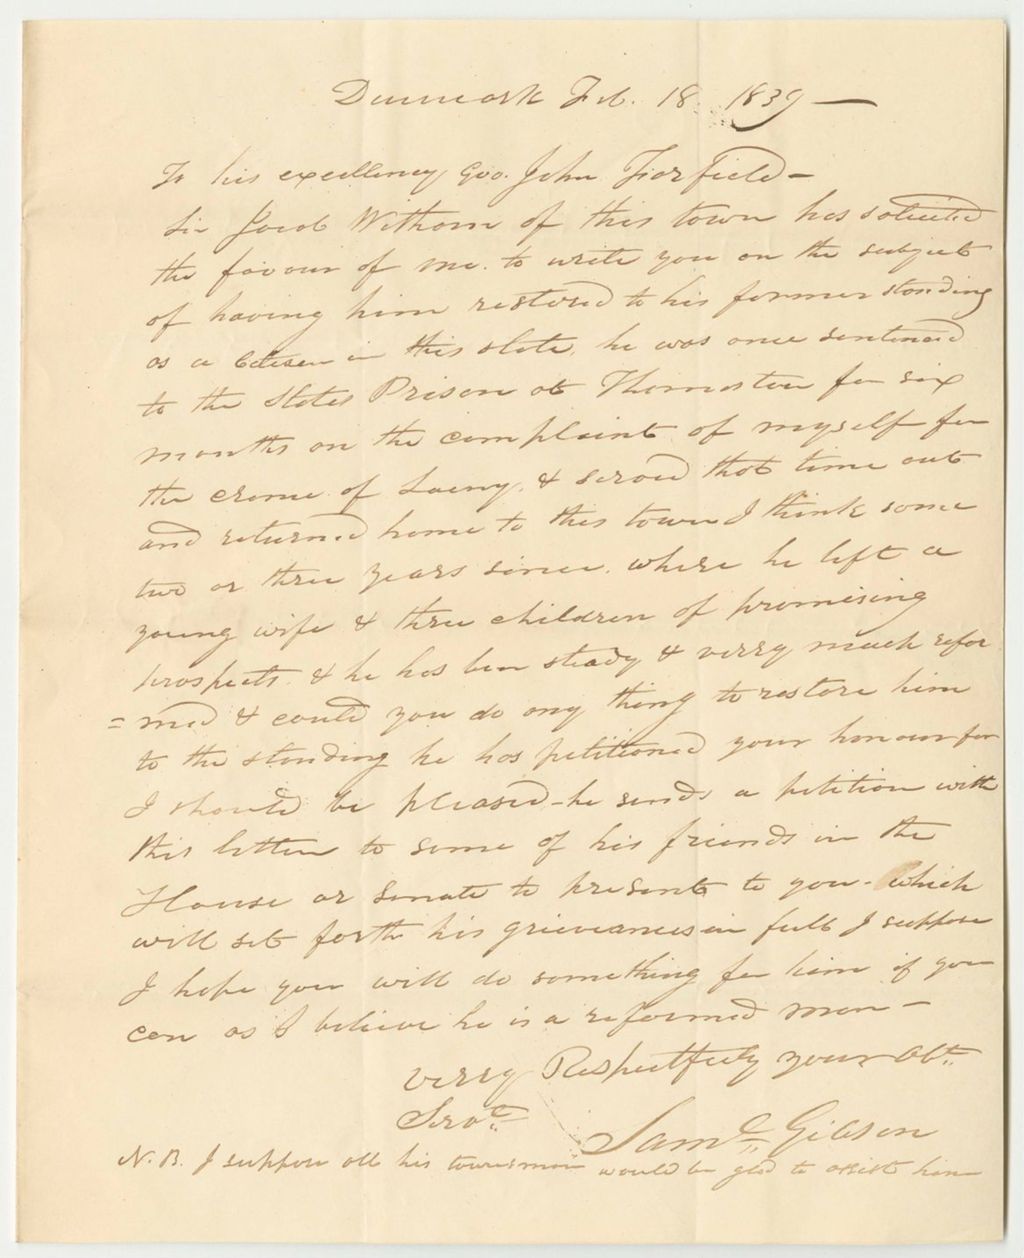 Denmark Feb. 18. 1839 —
To his excellency Gov. John Fairfield —
Sir Jacob Witham of this town has solicited
the favour of me. to write you on the subject
of having him restored to his former standing
as a Citizen in this state, he was once sentenced
to the States Prison at Thomaston for six
months on the complaint of myself for
the crime of Larceny, & served that time out
and returned home to this town I think some
two or three years since. where he left a
young wife & three children of promising
prospects. & he has ben steady & verry much refor
= med & could you do any thing to restore him
to the standing he has petitioned your honour for
I should be pleased - he sends a petition with
this letter to some of his friends in the
House or senate to present to you - which
will set forth his grieviances in full I suppose
I hope you will do something for him if you
can as I believe he is a reformed man —
verry Respectfully your Obt.
Servt.
Saml. Gibson
N.B. I suppose all his townsmen would be glad to assist him